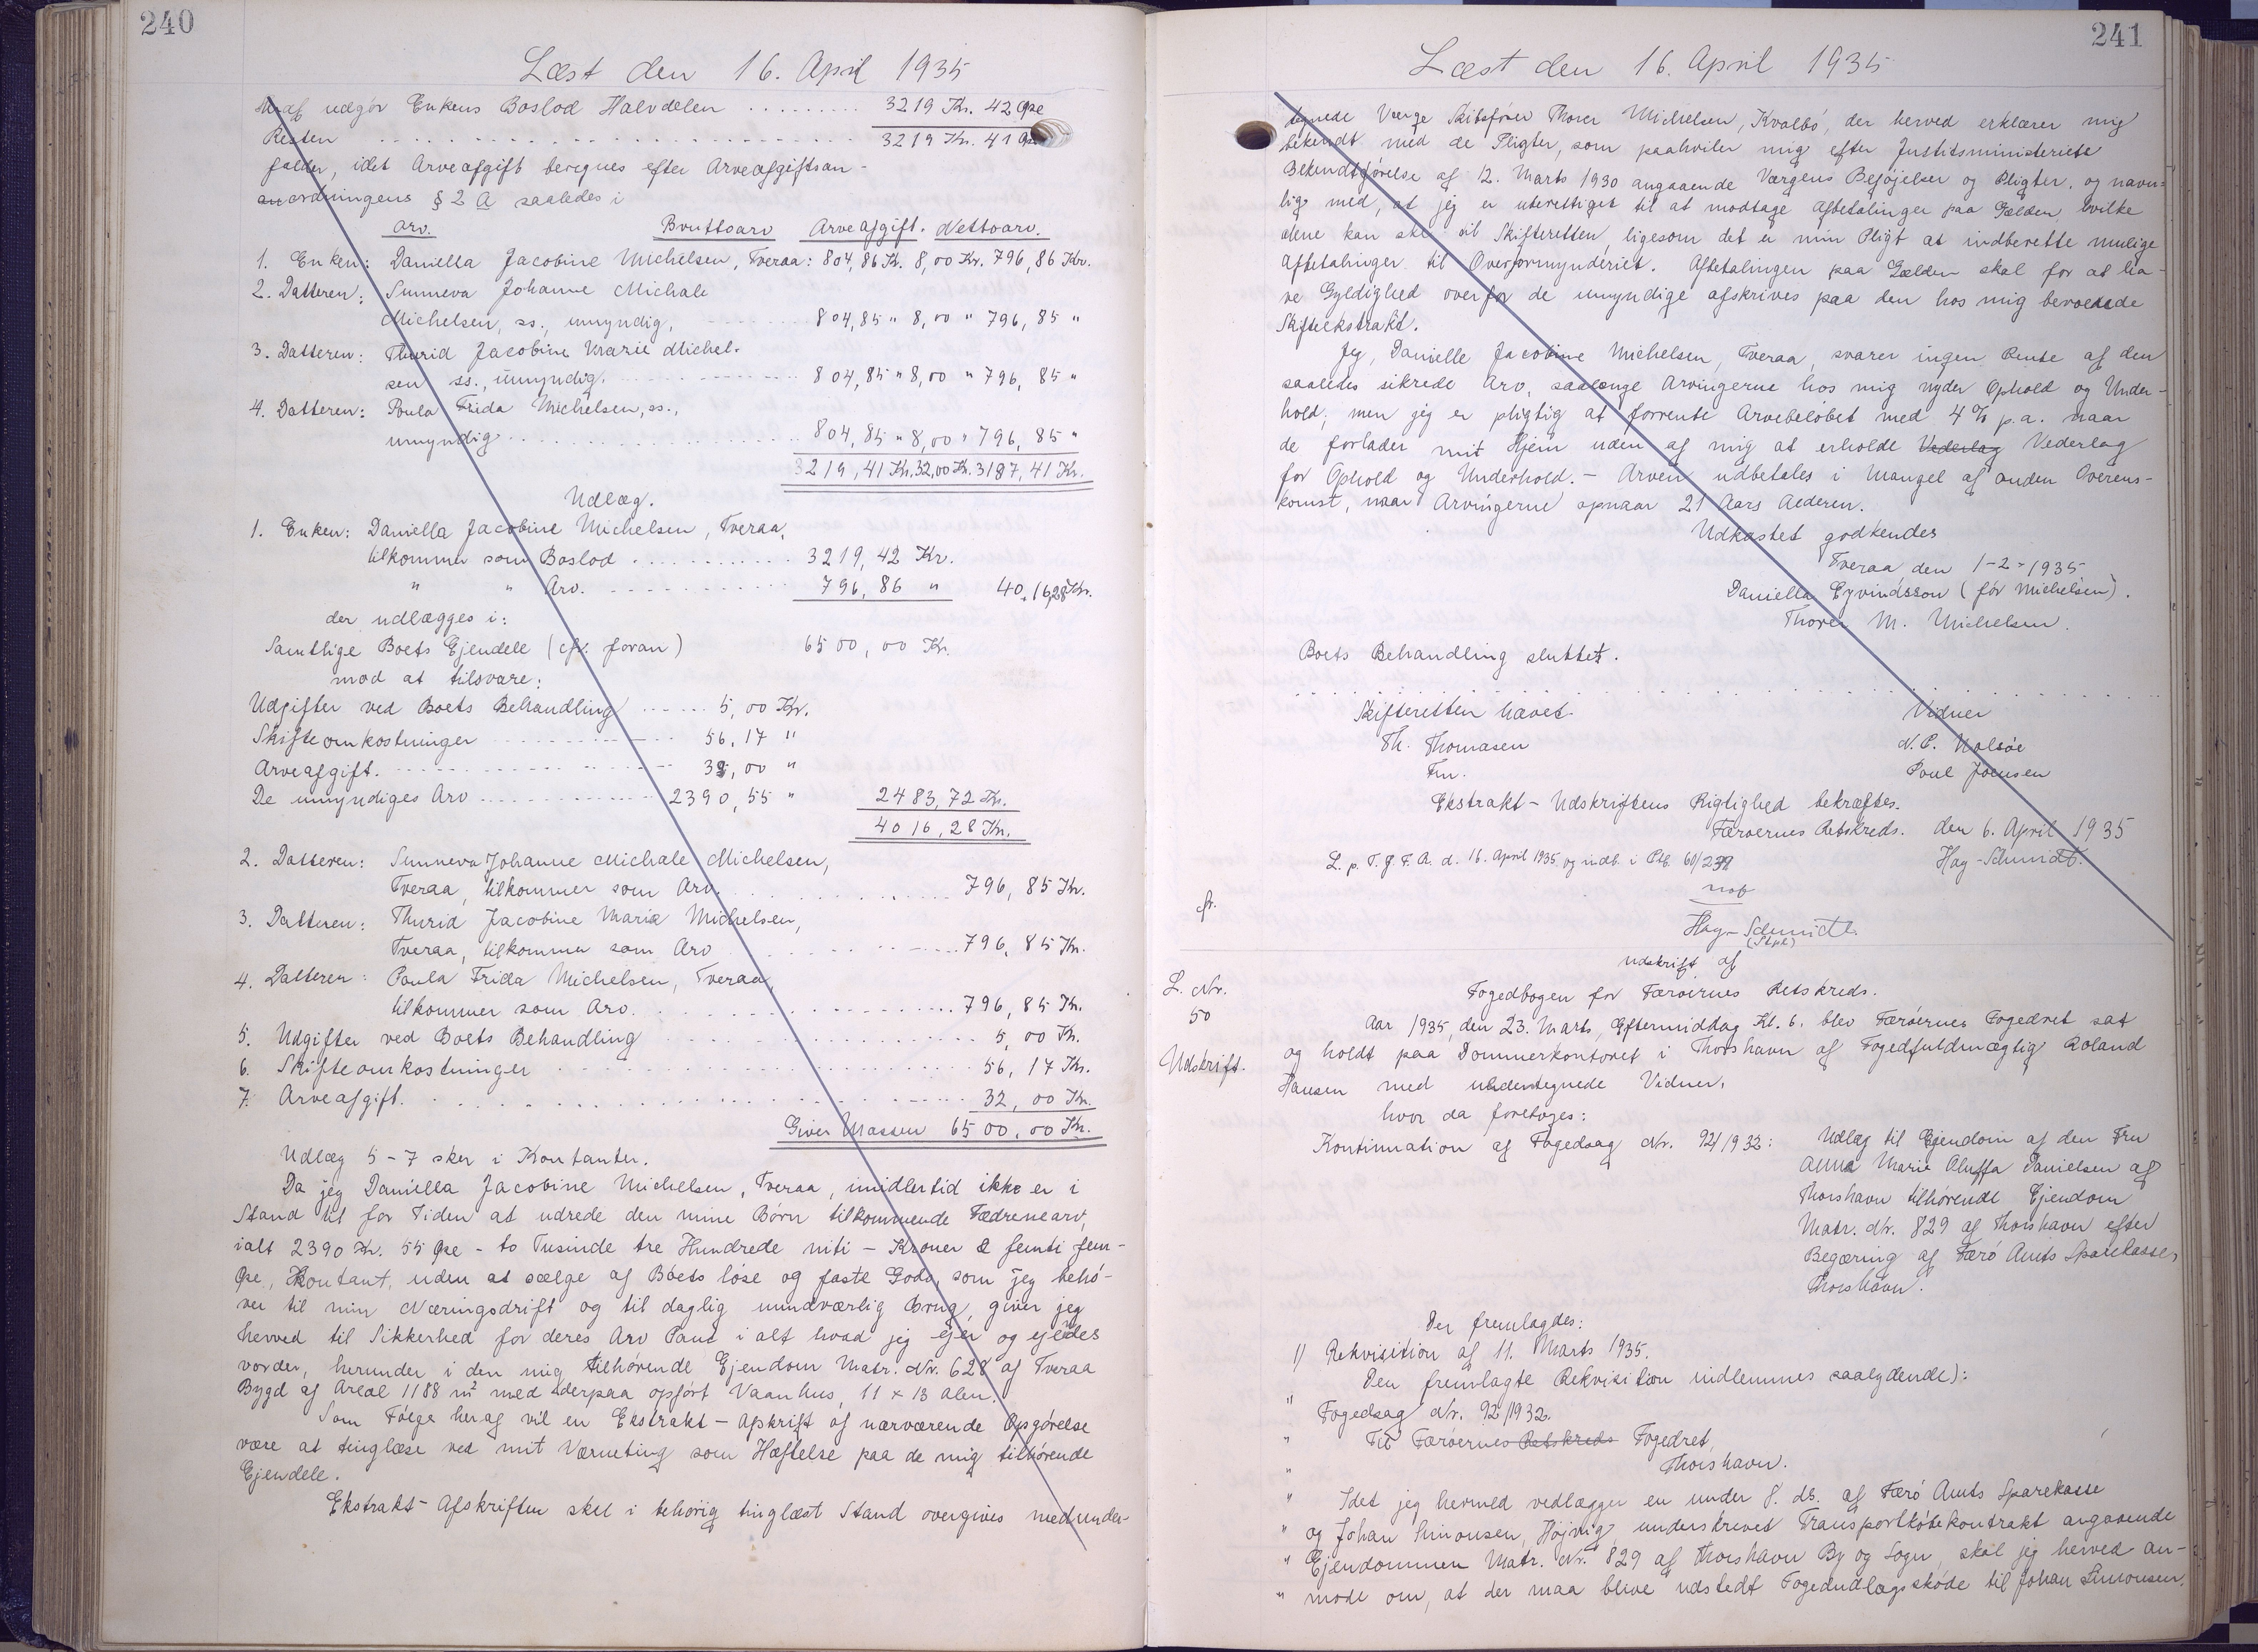 240
Læst den 16. April 1935
Heraf udgør Enkens Boslod Halvdelen . . . . . . . . . 3219 Kr. 42 Øre
Resten . . . . . . . . . . . . 3219 Kr. 41 Øre
falder, idet Arveafgift beregnes efter Arveafgiftsan-
an ordningens § 2 A saaledes i
Arv. Bruttoarv Arveafgift. Nettoarv.
1. Enken: Daniella Jacobine Michelsen, Tveraa: 804,86 Kr. 8,00 Kr. 796,86 Kr.
2. Datteren: Sunneva Johanne Michale
Michelsen, ss., umyndig, 804,85 " 8,00 " 796,85 "
3. Datteren: Thurid Jacobine Marie Michel-
sen ss., umyndig. 804,85 " 8,00 " 796,85 "
4. Datteren: Poula Frida Michelsen, ss.,
umyndig . . . . . . 804,85 " 8,00 " 796,85 "
3219,41 Kr. 32,00 Kr. 3187,41 Kr.
Udlæg.
1. Enken: Daniella Jacobine Michelsen, Tveraa,
tilkommer som Boslod . . . . . . . . 3219,42 Kr.
" " Arv. . . . . . . . . . 796,86 " 40,16,28 Kr.
der udlægges i:
Samtlige Boets Ejendele (cfr. foran) 6500,00 Kr.
mod at tilsvare:
Udgifter ved Boets Behandling . . . . . 5,00 Kr.
Skifteomkostninger . . . . . . 56,17 "
Arveafgift. . . . . . . . 32,00 "
De umyndiges Arv . . . . . . 2390,55 " 2483,72 Kr.
4016,28 Kr.
2. Datteren: Sunneva Johanne Michale Michelsen,
Tveraa, tilkommer som Arv. . . . . . . 796,85 Kr.
3. Datteren: Thurid Jacobine Maria Michelsen,
Tveraa, tilkommer som Arv . . . . . . 796,85 Kr.
4. Datteren: Poula Frida Michelsen, Tveraa,
tilkommer som Arv. . . . . . . . . 796,85 Kr.
5. Udgifter ved Boets Behandling . . . . . . . 5,00 Kr.
6. Skifteomkostninger . . . . . . . . 56,17 Kr.
7. Arveafgift. . . . . . . . . . . 32,00 Kr.
Giver Massen 6500,00 Kr.
Udlæg 5-7 sker i Kontanter.
Da jeg Daniella Jacobine Michelsen, Tveraa, imidlertid ikke er i
Stand til for Tiden at udrede den mine Børn tilkommende Fædrenearv,
ialt 2390 Kr. 55 Øre - to Tusinde tre Hundrede niti - Kroner & femti fem-
Øre, Kontant, uden at sælge af Boets løse og faste Gods, som jeg behø-
ver til min Næringsdrift og til daglig uundværlig Brug, giver jeg
herved til Sikkerhed for deres Arv Pant i alt hvad jeg ejer og ejendes
vorder, herunder i den mig tilhørende Ejendom Matr. Nr. 628 af Tveraa
Bygd af Areal 1188 m² med derpaa opført Vaanhus, 11 x 13 Alen.
Som Følge heraf vil en Ekstrakt - Afskrift af nærværende Opgørelse
være at tinglæse ved mit Værneting som Hæftelse paa de mig tilhørende
Ejendele.
Ekstrakt - Afskriften skal i behørig tinglæst Stand overgives medunder-
241
Læst den 16. April 1935
tegnede Værge Skibsfører Thorer Michelsen, Kvalbø, der herved erklærer mig
bekendt med de Pligter, som paahviler mig efter Justitsministeriets
Bekendtgørelse af 12. Marts 1930 angaaende Værgens Beføjelser og Pligter, og navn-
lig med, at jeg er uberettiget til at modtage Afbetalinger paa Gælden, hvilke
alene kan ske til Skifteretten, ligesom det er min Pligt at indberette mulige
Afbetalinger til Overformynderiet. Afbetalingen paa Gælden skal for at ha-
ve Gyldighed overfor de umyndige afskrives paa den hos mig beroende
Skifteekstrakt.
Jeg, Danielle Jacobine Michelsen, Tveraa, svarer ingen Rente af den
saaledes sikrede Arv, saalænge Arvingerne hos mig nyder Ophold og Under-
hold; men jeg er pligtig at forrente Arvebeløbet med 4 % p.a. naar
de forlader mit Hjem uden af mig at erholde Vederlag Vederlag
for Ophold og Underhold. - Arven udbetales i Mangel af anden Overens-
komst, naar Arvingerne opnaar 21 Aars Alderen.
Udkastet godkendes
Tveraa den 1-2-1935
Daniella Eyvindsson (før Michelsen).
Thorer M. Michelsen.
Boets Behandling sluttet.
Skifteretten hævet. Vidner
Th. Thomasen N.P. Nolsøe
Fm. Poul Joensen
Ekstrakt - Udskriftens Rigtighed bekræftes.
Færøernes Retskreds. den 6. April 1935
L. p. T. f. F. A. d. 16. April 1935 og indb. i Ptb. 60/239 Hay-Schmidt.
nob
cfr.
Hay-Schmidt.
(Stpl)
L. Nr.
50
Udskrift.
Udskrift af
Fogedbogen for Færøernes Retskreds.
Aar 1935, den 23. Marts, Eftermiddag Kl. 6. blev Færøernes Fogedret sat
og holdt paa Dommerkontoret i Thorshavn af Fogedfuldmægtig Roland
Hansen med undertegnede Vidner,
hvor da foretoges:
Kontinuation af Fogedsag Nr. 92/1932: Udlæg til Ejendom af den Fru
Anna Marie Oluffa Danielsen af
Thorshavn tilhørende Ejendom
Matr. Nr. 829 af Thorshavn efter
Begæring af Færø Amts Sparekasse,
Thorshavn.
Der fremlagdes:
1) Rekvisition af 11. Marts 1935.
Den fremlagte Rekvisition indlemmes saalydende):
" Fogedsag Nr. 92/1932.
" Til Færøernes Retskreds Fogedret,
" Thorshavn.
" Idet jeg hermed vedlægger en under 8. ds. af Færø Amts Sparekasse
" og Johan Simonsen, Højvig, underskrevet Transportkøbekontrakt angaaende
" Ejendommen Matr. Nr. 829 af Thorshavn By og Sogn, skal jeg herved an-
" mode om, at der maa blive udstedt Fogedudlægsskøde til Johan Simonsen.